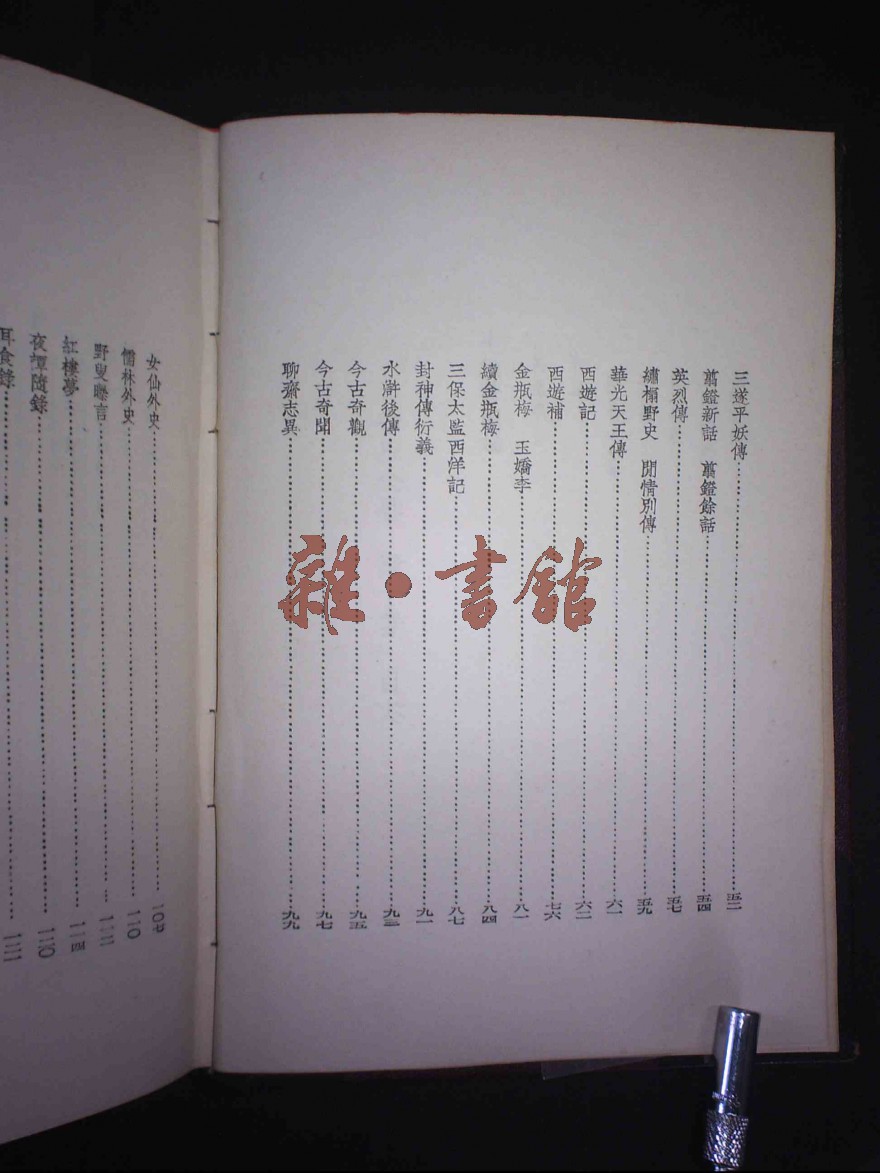 三遂平妖傳……五二
翦鐙新話　翦鐙餘話……五四
英烈傳……五七
繡榻野史　閒情別傳……五九
華光天王傳……六一
西遊記……六二
西遊補……七六
金瓶梅　玉嬌李……八一
續金瓶梅……八四
三保太監西洋記……八七
封神傳衍義……九一
水滸後傳……九三
今古奇觀……九五
今古奇聞……九七
聊齋志異……九九
女仙外史……
儒林外史……一一〇
野叟曝言……
紅樓夢……一一四
夜譚隨錄……一二〇
耳食錄……
雜·書館